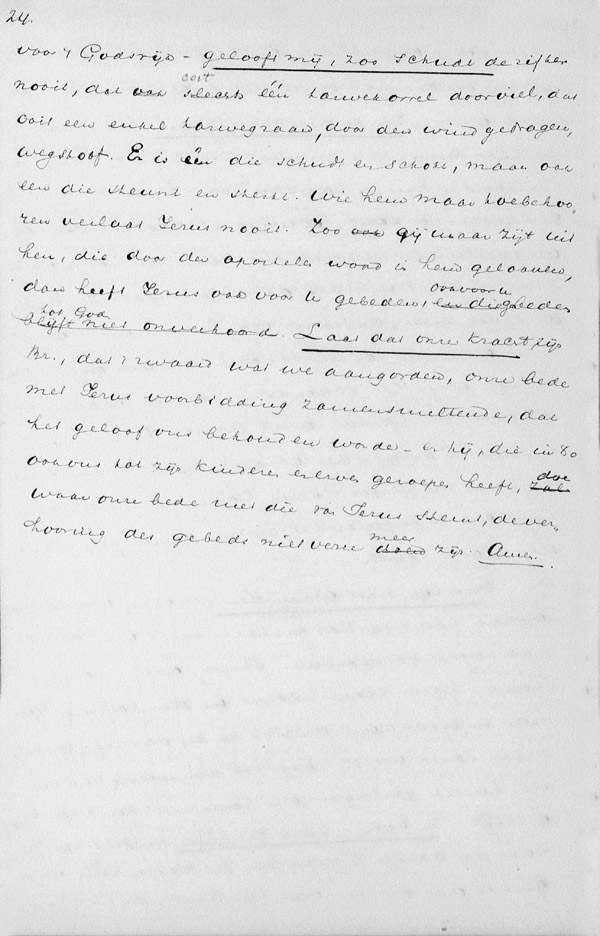 24.
voor 't Godsrijk – gelooft mij, zoo schudt de zifter
nooit, dat ook ooit slechts één tarwekorrel doorviel, dat
ooit een enkel tarwegraan, door den wind gedragen,
wegstoof. Er is één die schudt en schokt, maar ook
een die steunt en sterkt. Wie hem maar toebehoo-
ren verlaat Jezus nooit. Zoo ook gij maar zijt uit
hen, die door der apostelen woord in hem gelooven,
dan heeft Jezus ook voor u gebeden, en die gebeden ook voor u
tot God
blijft niet onverhoord. Laat dat onze kracht zijn
Br., dat 't zwaard wat we aangorden, onze bede
met Jezus voorbidding zamensmeltende, dat
het geloof ons behouden worde – en hij, die in
ook ons tot zijn kinderen en erven geroepen heeft, zal doe
waar onze bede met die van Jezus stemt, de ver-
hooring des gebeds niet verre doen meer zijn. Amen.